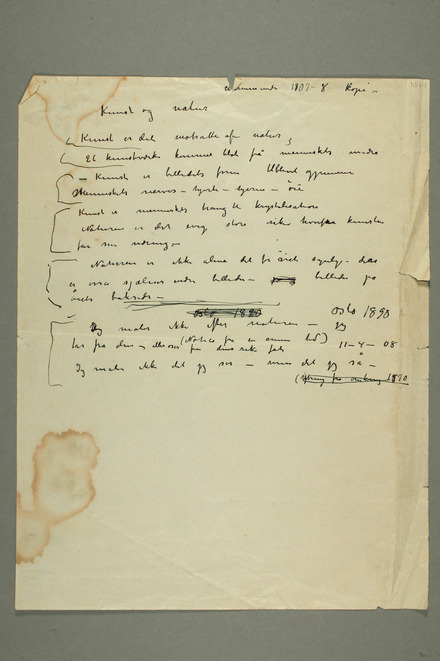 Warnemünde 1907-8 Kopi –
Kunst og natur
Kunst er det modsatte af natur
Et kunstværk kommer blot fra menneskets indre
– Kunst er billedets form
Menneskets nerver – hjerte – hjerne – öie
Kunst er menneskets trang til krystalisation
Naturen er det evig store rike hvorfra kunsten
får sin næring –
Naturen er ikke alene det for öiet synlige – det
er også sjælens indre billeder – billeder på
öiets bakside –
Oslo 1890 Oslo 1890
Jeg maler ikke efter naturen – jeg
tar fra den – eller öser fra dens rike fat
(Notits fra en annen bok) 11–4–08
Jeg maler ikke det jeg ser – men det jeg så –
1890